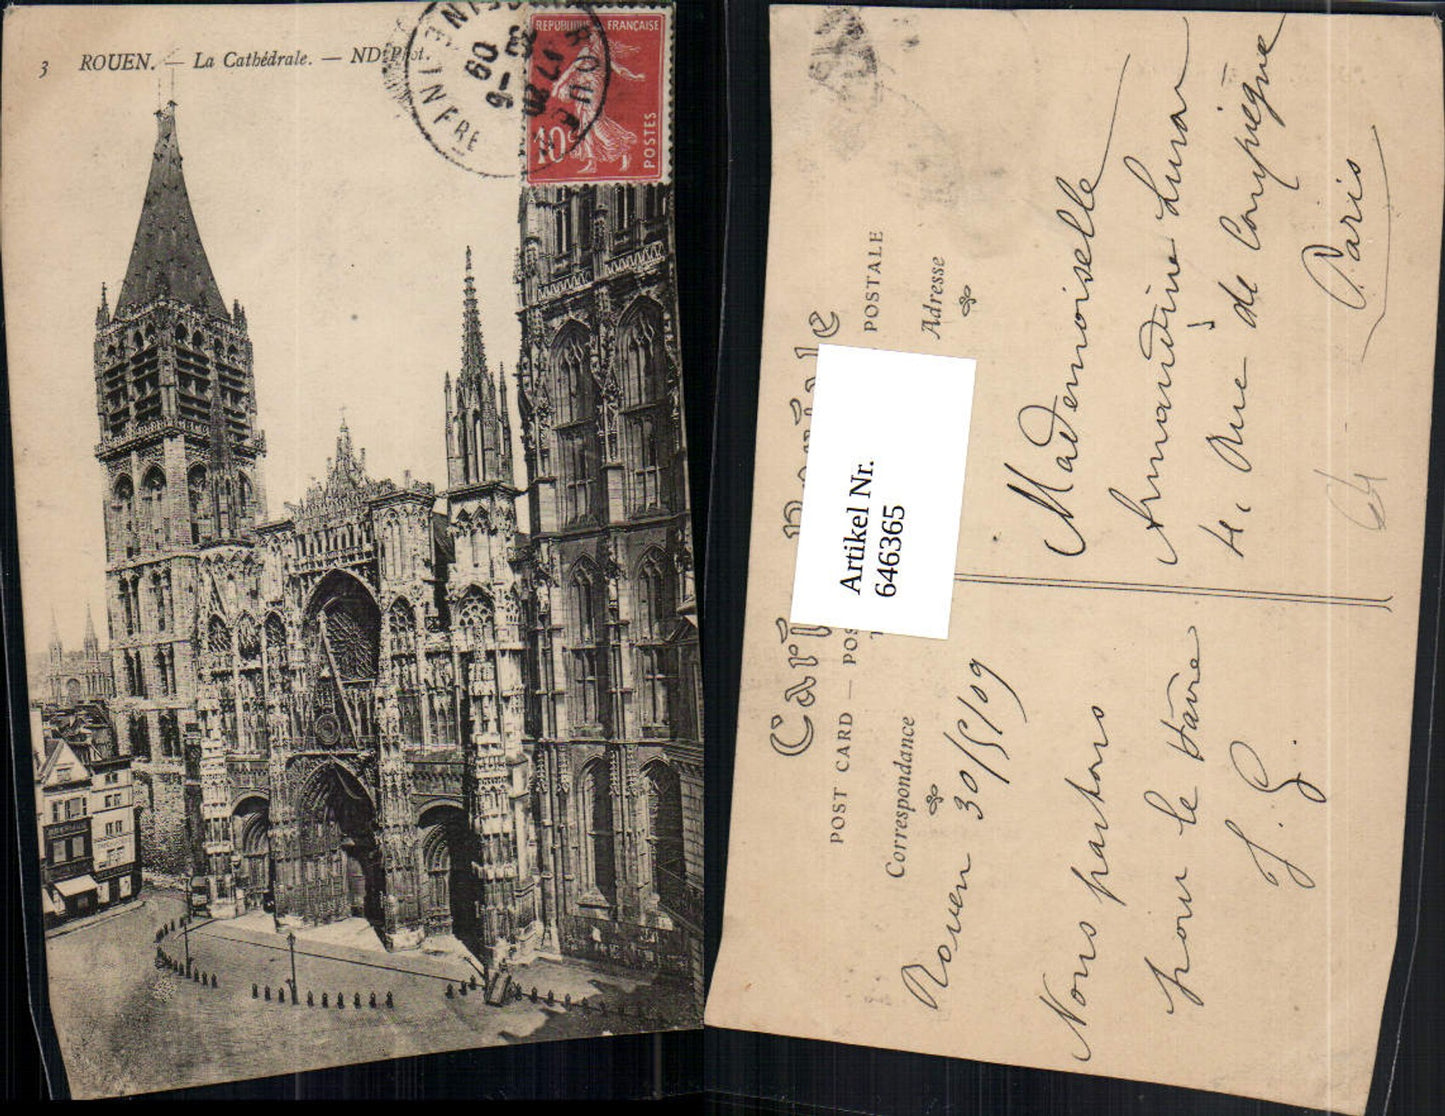 3 ROUEN. — La Cathédrale. — ND Phot.
REPUBLIQUE FRANÇAISE
10c
POSTES
ROUEN
INFRE
09
POSTALE
POST CARD — POS
Correspondance
Adresse
Artikel Nr.
646365
Rouen 30/5/09
Nous partons
pour le Havre
J. G.
Mademoiselle
Amandine
4, Rue de Compiègne
Paris
64